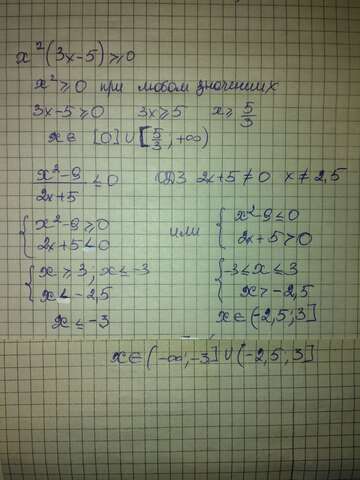 x²(3x-5)≥0
x²≥0 при любом значениях
3x-5≥0 3x≥5 x≥ 5/3
x∈ [0]∪[5/3; +∞)
x²-9/2x+5 ≤0 ОДЗ 2x+5≠0 x≠2,5
{x²-9≥0 2x+5<0 или {x²-9≤0 2x+5>0
{x≥3; x≤-3 x<-2,5 {-3≤x≤3 x>-2,5
x≤-3 x∈(-2,5;3]
x∈(-∞;-3]∪(-2,5;3]